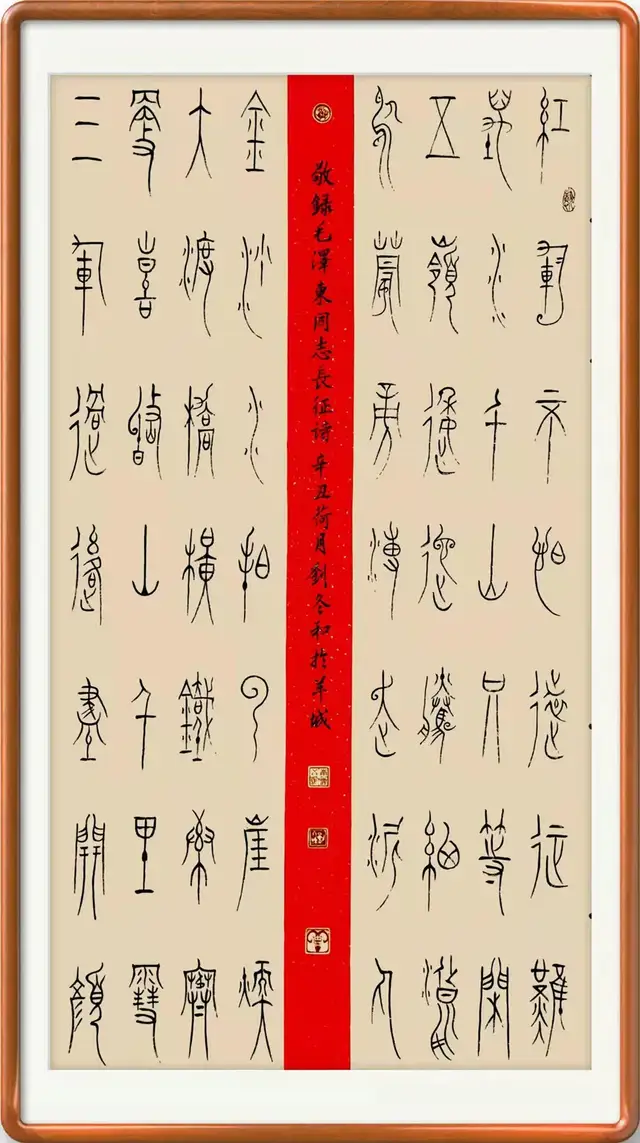 紅軍不怕遠征難
萬水千山只等閑
五嶺逶迤騰細浪
烏蒙磅礴走泥丸
敬錄毛澤東同志長征詩辛丑荷月劉冬和於羊城
金沙水拍雲崖煖
大渡橋橫鐵索寒
更喜岷山千里雪
三軍過後盡開顏